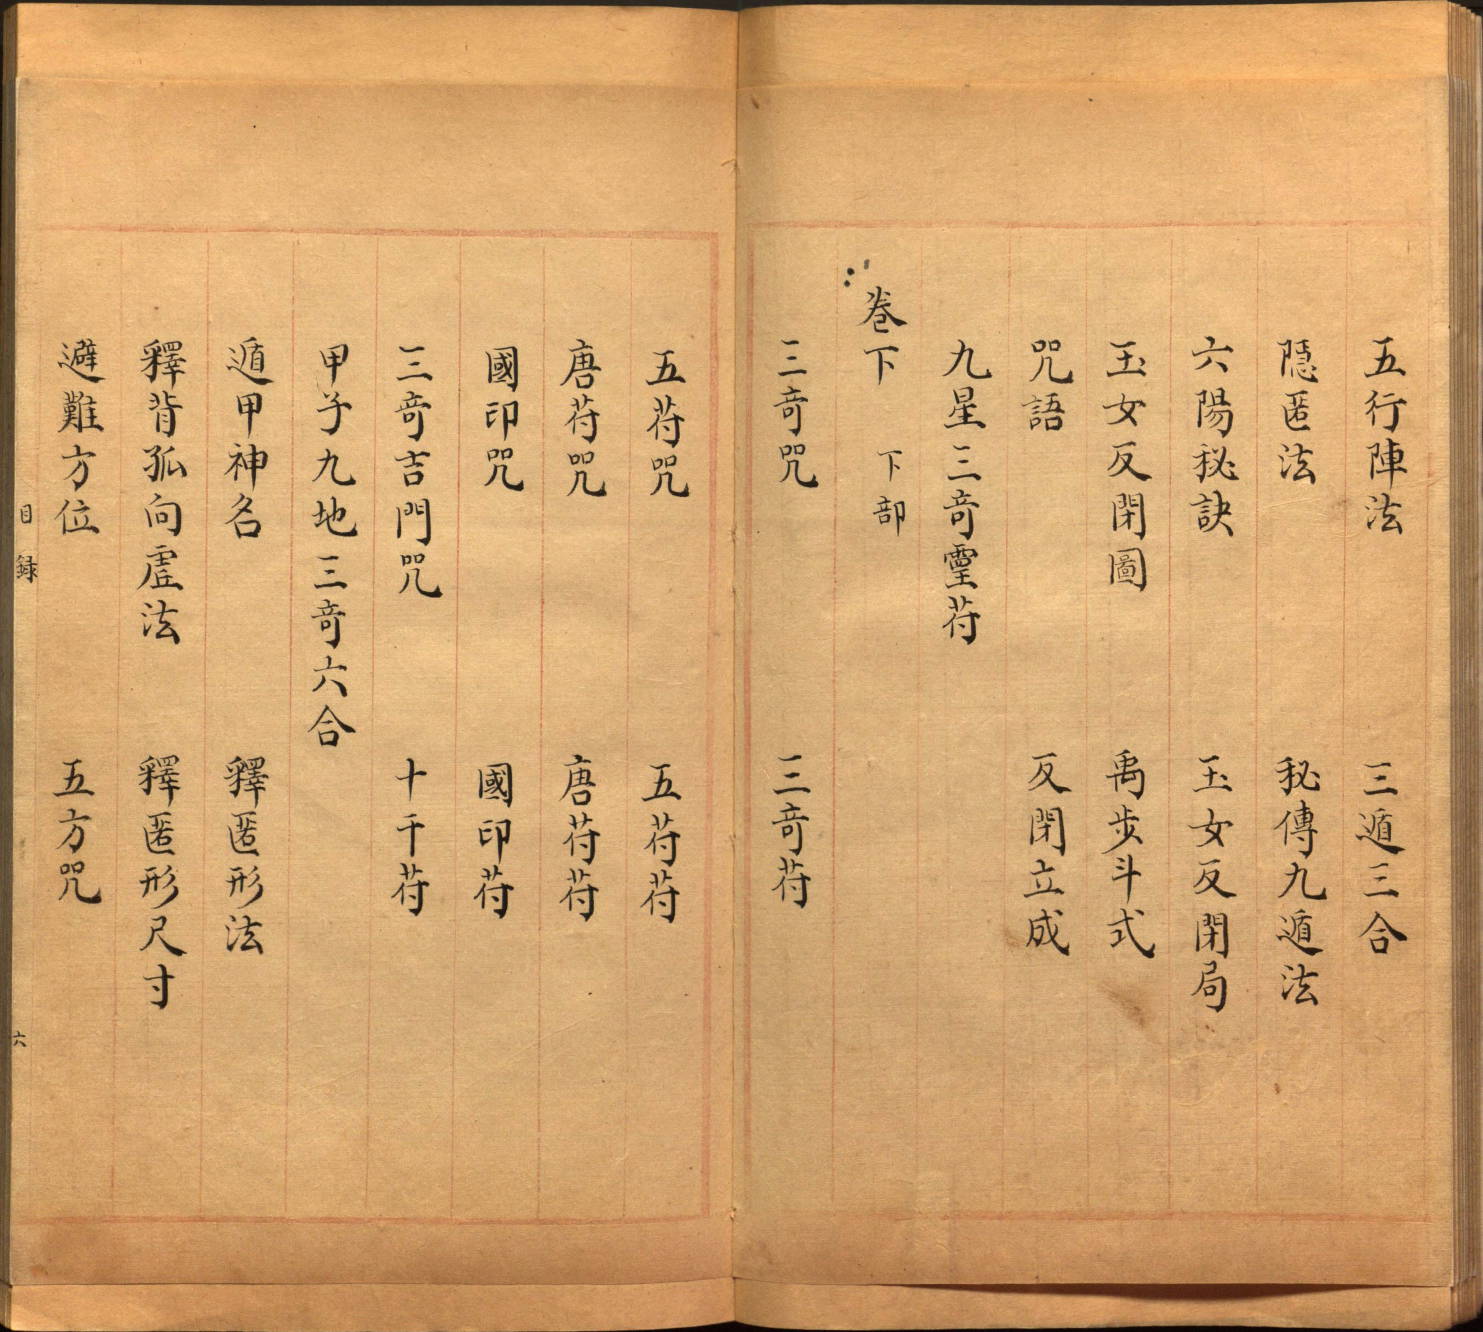 五行陣法　三遁三合
隱匿法　秘傳九遁法
六陽秘訣　玉女反閉局
玉女反閉圖　禹步斗式
咒語　反閉立成
九星三奇靈苻
卷下　下部
三奇咒　三奇苻
五苻咒　五苻苻
唐苻咒　唐苻苻
國印咒　國印苻
三奇吉門咒　十干苻
甲子九地三奇六合
遁甲神名　釋匿形法
釋背孤向虛法　釋匿形尺寸
避難方位　五方咒
目録　六